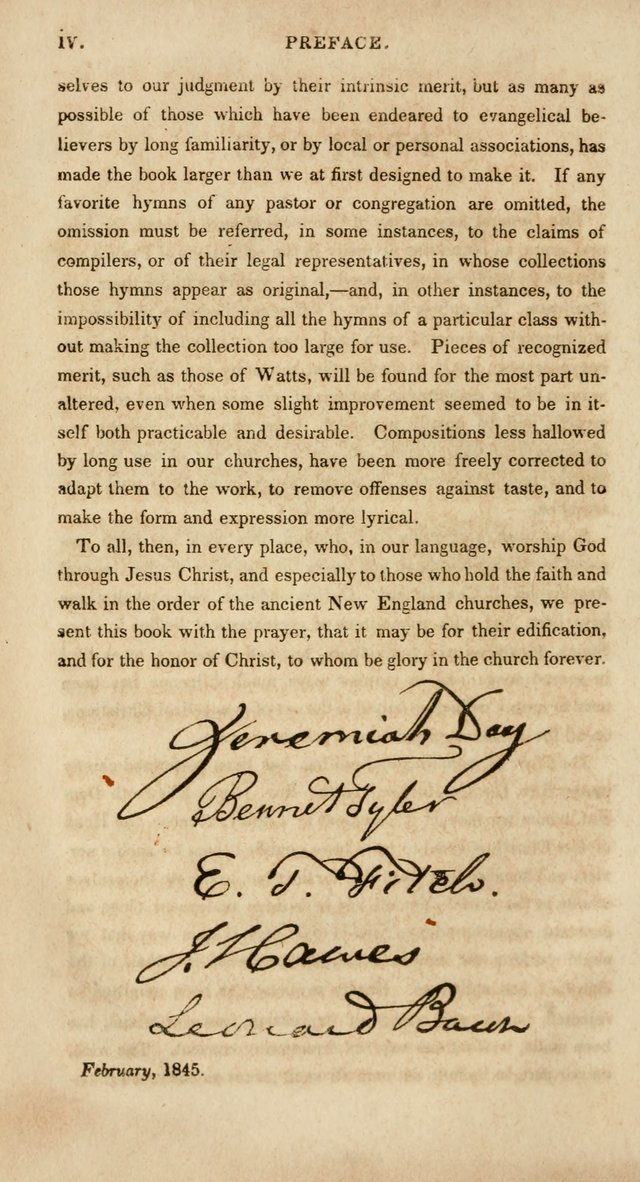 iv. PREFACE.
selves to our judgment by their intrinsic merit, but as many as
possible of those which have been endeared to evangelical be-
lievers by long familiarity, or by local or personal associations, has
made the book larger than we at first designed to make it. If any
favorite hymns of any pastor or congregation are omitted, the
omission must be referred, in some instances, to the claims of
compilers, or of their legal representatives, in whose collections
those hymns appear as original,—and, in other instances, to the
impossibility of including all the hymns of a particular class with-
out making the collection too large for use. Pieces of recognized
merit, such as those of Watts, will be found for the most part un-
altered, even when some slight improvement seemed to be in it-
self both practicable and desirable. Compositions less hallowed
by long use in our churches, have been more freely corrected to
adapt them to the work, to remove offenses against taste, and to
make the form and expression more lyrical.
To all, then, in every place, who, in our language, worship God
through Jesus Christ, and especially to those who hold the faith and
walk in the order of the ancient New England churches, we pre-
sent this book with the prayer, that it may be for their edification,
and for the honor of Christ, to whom be glory in the church forever.
Jeremiah Day
Bennet Tyler
E. T. Fitch.
J. Hawes
Leonard Bacon
February, 1845.